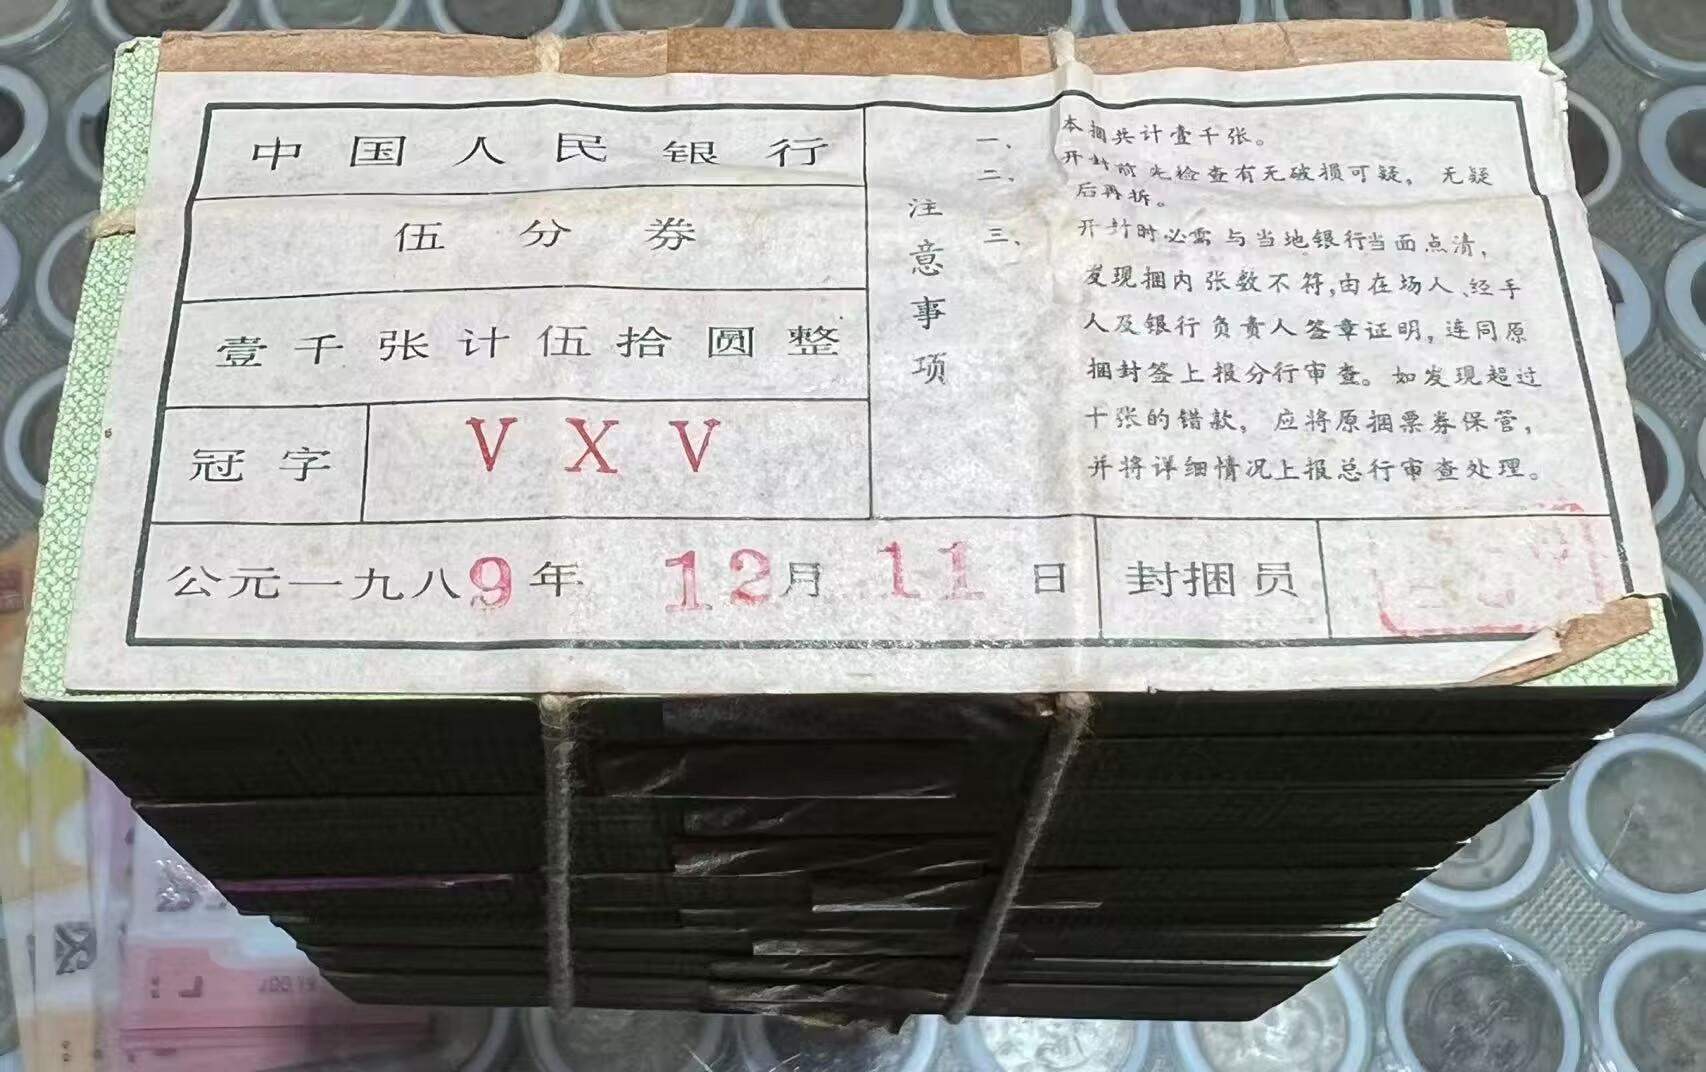 中国人民银行
伍分券
壹千张计伍拾圆整
冠字 VXV
公元一九八9年 12月 11日 封捆员
注意事项
一、本捆共计壹千张。
二、开封前先检查有无破损可疑，无疑
后再拆。
三、开封时必需与当地银行当面点清，
发现捆内张数不符，由在场人、经手
人及银行负责人签章证明，连同原
捆封签上报分行审查。如发现超过
十张的错款，应将原捆票券保管，
并将详细情况上报总行审查处理。